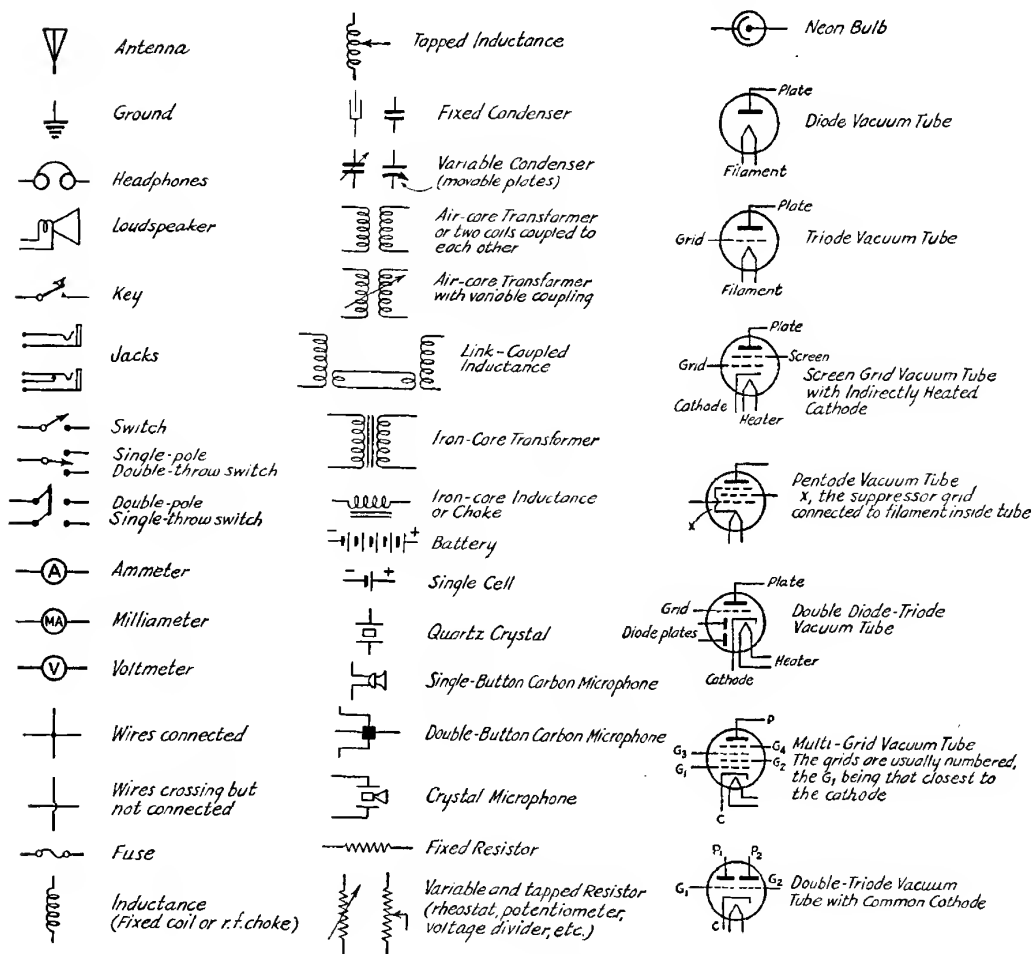 Antenna
Ground
Headphones
Loudspeaker
Key
Jacks
Switch
Single-pole
Double-throw switch
Double-pole
Single-throw switch
A
Ammeter
MA
Milliameter
V
Voltmeter
Wires connected
Wires crossing but
not connected
Fuse
Inductance
(Fixed coil or r.f. choke)
Tapped Inductance
Fixed Condenser
Variable Condenser
(movable plates)
Air-core Transformer
or two coils coupled to
each other
Air-core Transformer
with variable coupling
Link-Coupled
Inductance
Iron-Core Transformer
Iron-core Inductance
or Choke
- +
Battery
- +
Single Cell
Quartz Crystal
Single-Button Carbon Microphone
Double-Button Carbon Microphone
Crystal Microphone
Fixed Resistor
Variable and tapped Resistor
(rheostat, potentiometer,
voltage divider, etc.)
Neon Bulb
Plate
Diode Vacuum Tube
Filament
Plate
Grid
Triode Vacuum Tube
Filament
Plate
Screen
Grid
Screen Grid Vacuum Tube
with Indirectly Heated
Cathode
Cathode
Heater
Pentode Vacuum Tube
X, the suppressor grid
connected to filament inside tube
X
Plate
Grid
Double Diode-Triode
Vacuum Tube
Diode plates
Heater
Cathode
P
G3
G4
G1
G2
Multi-Grid Vacuum Tube
The grids are usually numbered,
the G1 being that closest to
the cathode
C
P1 P2
G1
G2
Double-Triode Vacuum
Tube with Common Cathode
C